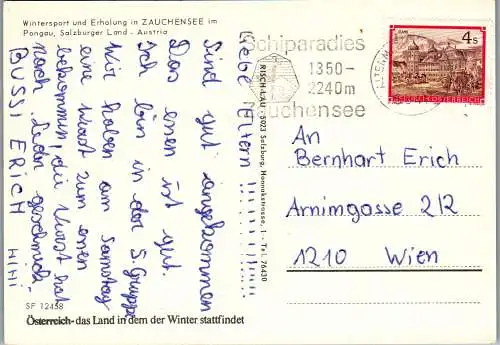 Wintersport und Erholung in ZAUCHENSEE im
Pongau, Salzburger Land - Austria
Liebe Eltern!!!!!....
Sind gut angekommen
Das essen ist gut.
Ich bin in der S. Gruppe
Wir haben am Samstag
eine Wurst zum essen
bekommen, die Wurst hat
nach Leder geschmeckt.
BUSSI ERICH HIHI
SF 12458
Österreich - das Land in dem der Winter stattfindet
RISCH-LAU, 5023 Salzburg, Hannakstrasse, 1 - Tel. 76430
Schiparadies
1350-
2240m
Zauchensee
ALTENM
4s
REPUBLIK ÖSTERREICH
An
Bernhart Erich
Arnimgasse 2/2
1210 Wien